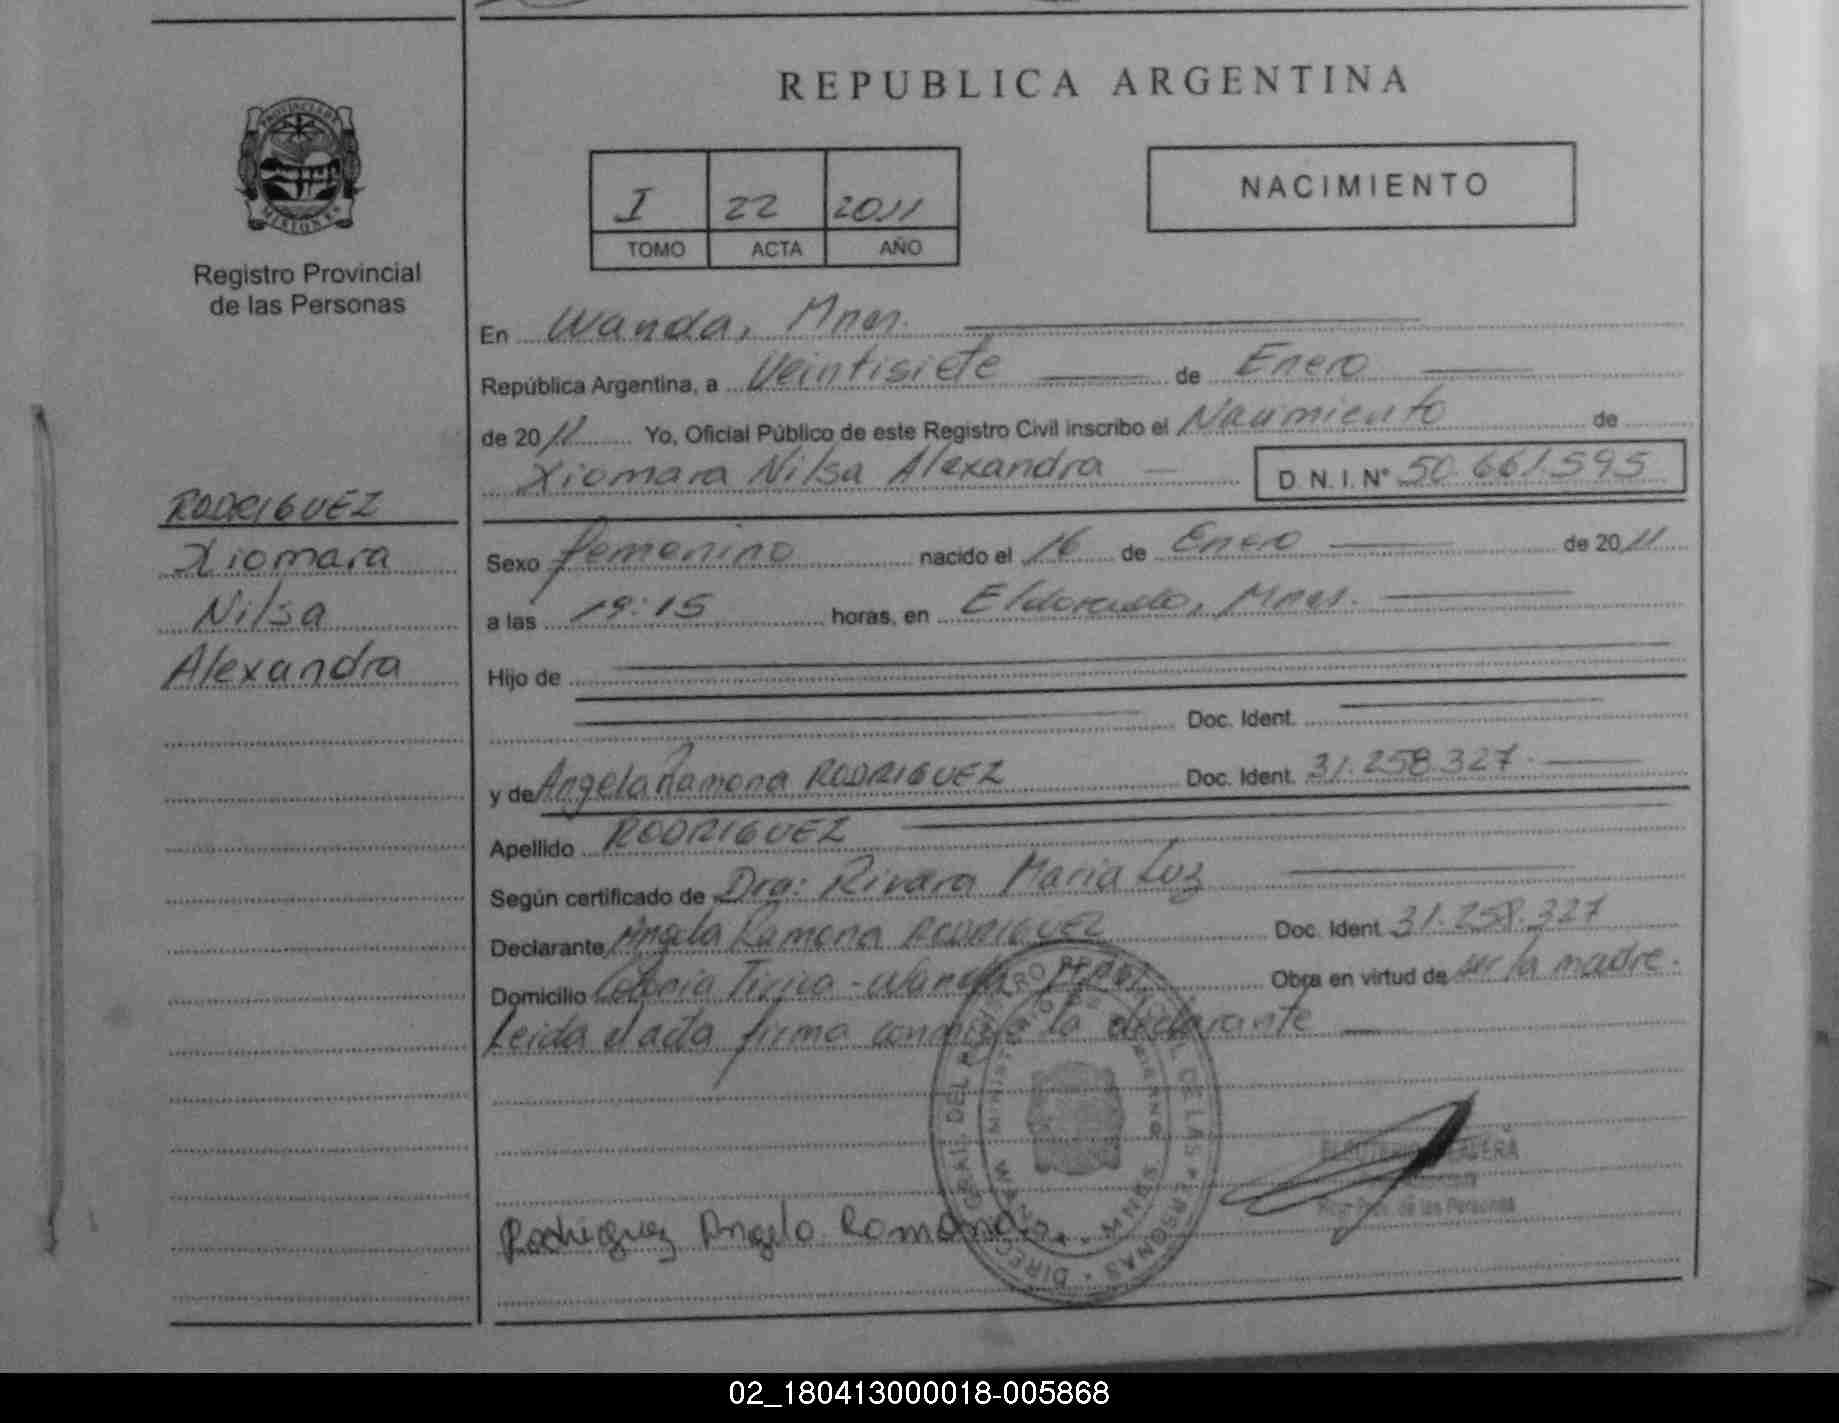 REPUBLICA ARGENTINA
PROVINCIA DE
MISIONES
Registro Provincial
de las Personas
I 22 2011
TOMO ACTA AÑO
NACIMIENTO
En Wanda, Mnes.
República Argentina, a Veintisiete de Enero
de 2011 Yo, Oficial Público de este Registro Civil inscribo el Nacimiento de
Xiomara Nilsa Alexandra D. N. I. Nº 50.661.595
RODRIGUEZ
Xiomara
Nilsa
Alexandra
Sexo femenino nacido el 16 de Enero de 2011
a las 19:15 horas, en Eldorado, Mnes.
Hijo de
Doc. Ident.
y de Angela Ramona RODRIGUEZ Doc. Ident. 31.258.327
Apellido RODRIGUEZ
Según certificado de Dra: Rivara Maria Luz
Declarante Angela Ramona RODRIGUEZ Doc. Ident 31.258.327
Domicilio Colonia - Wanda Mnes. Obra en virtud de ser la madre.
Leida el acta firma conmigo la declarante
Rodriguez Angela Ramona
Prov. de las Personas
02_180413000018-005868